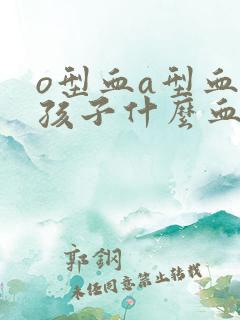 o型血a型血
孩子什麼血
郭鋼
未任同意禁止转载